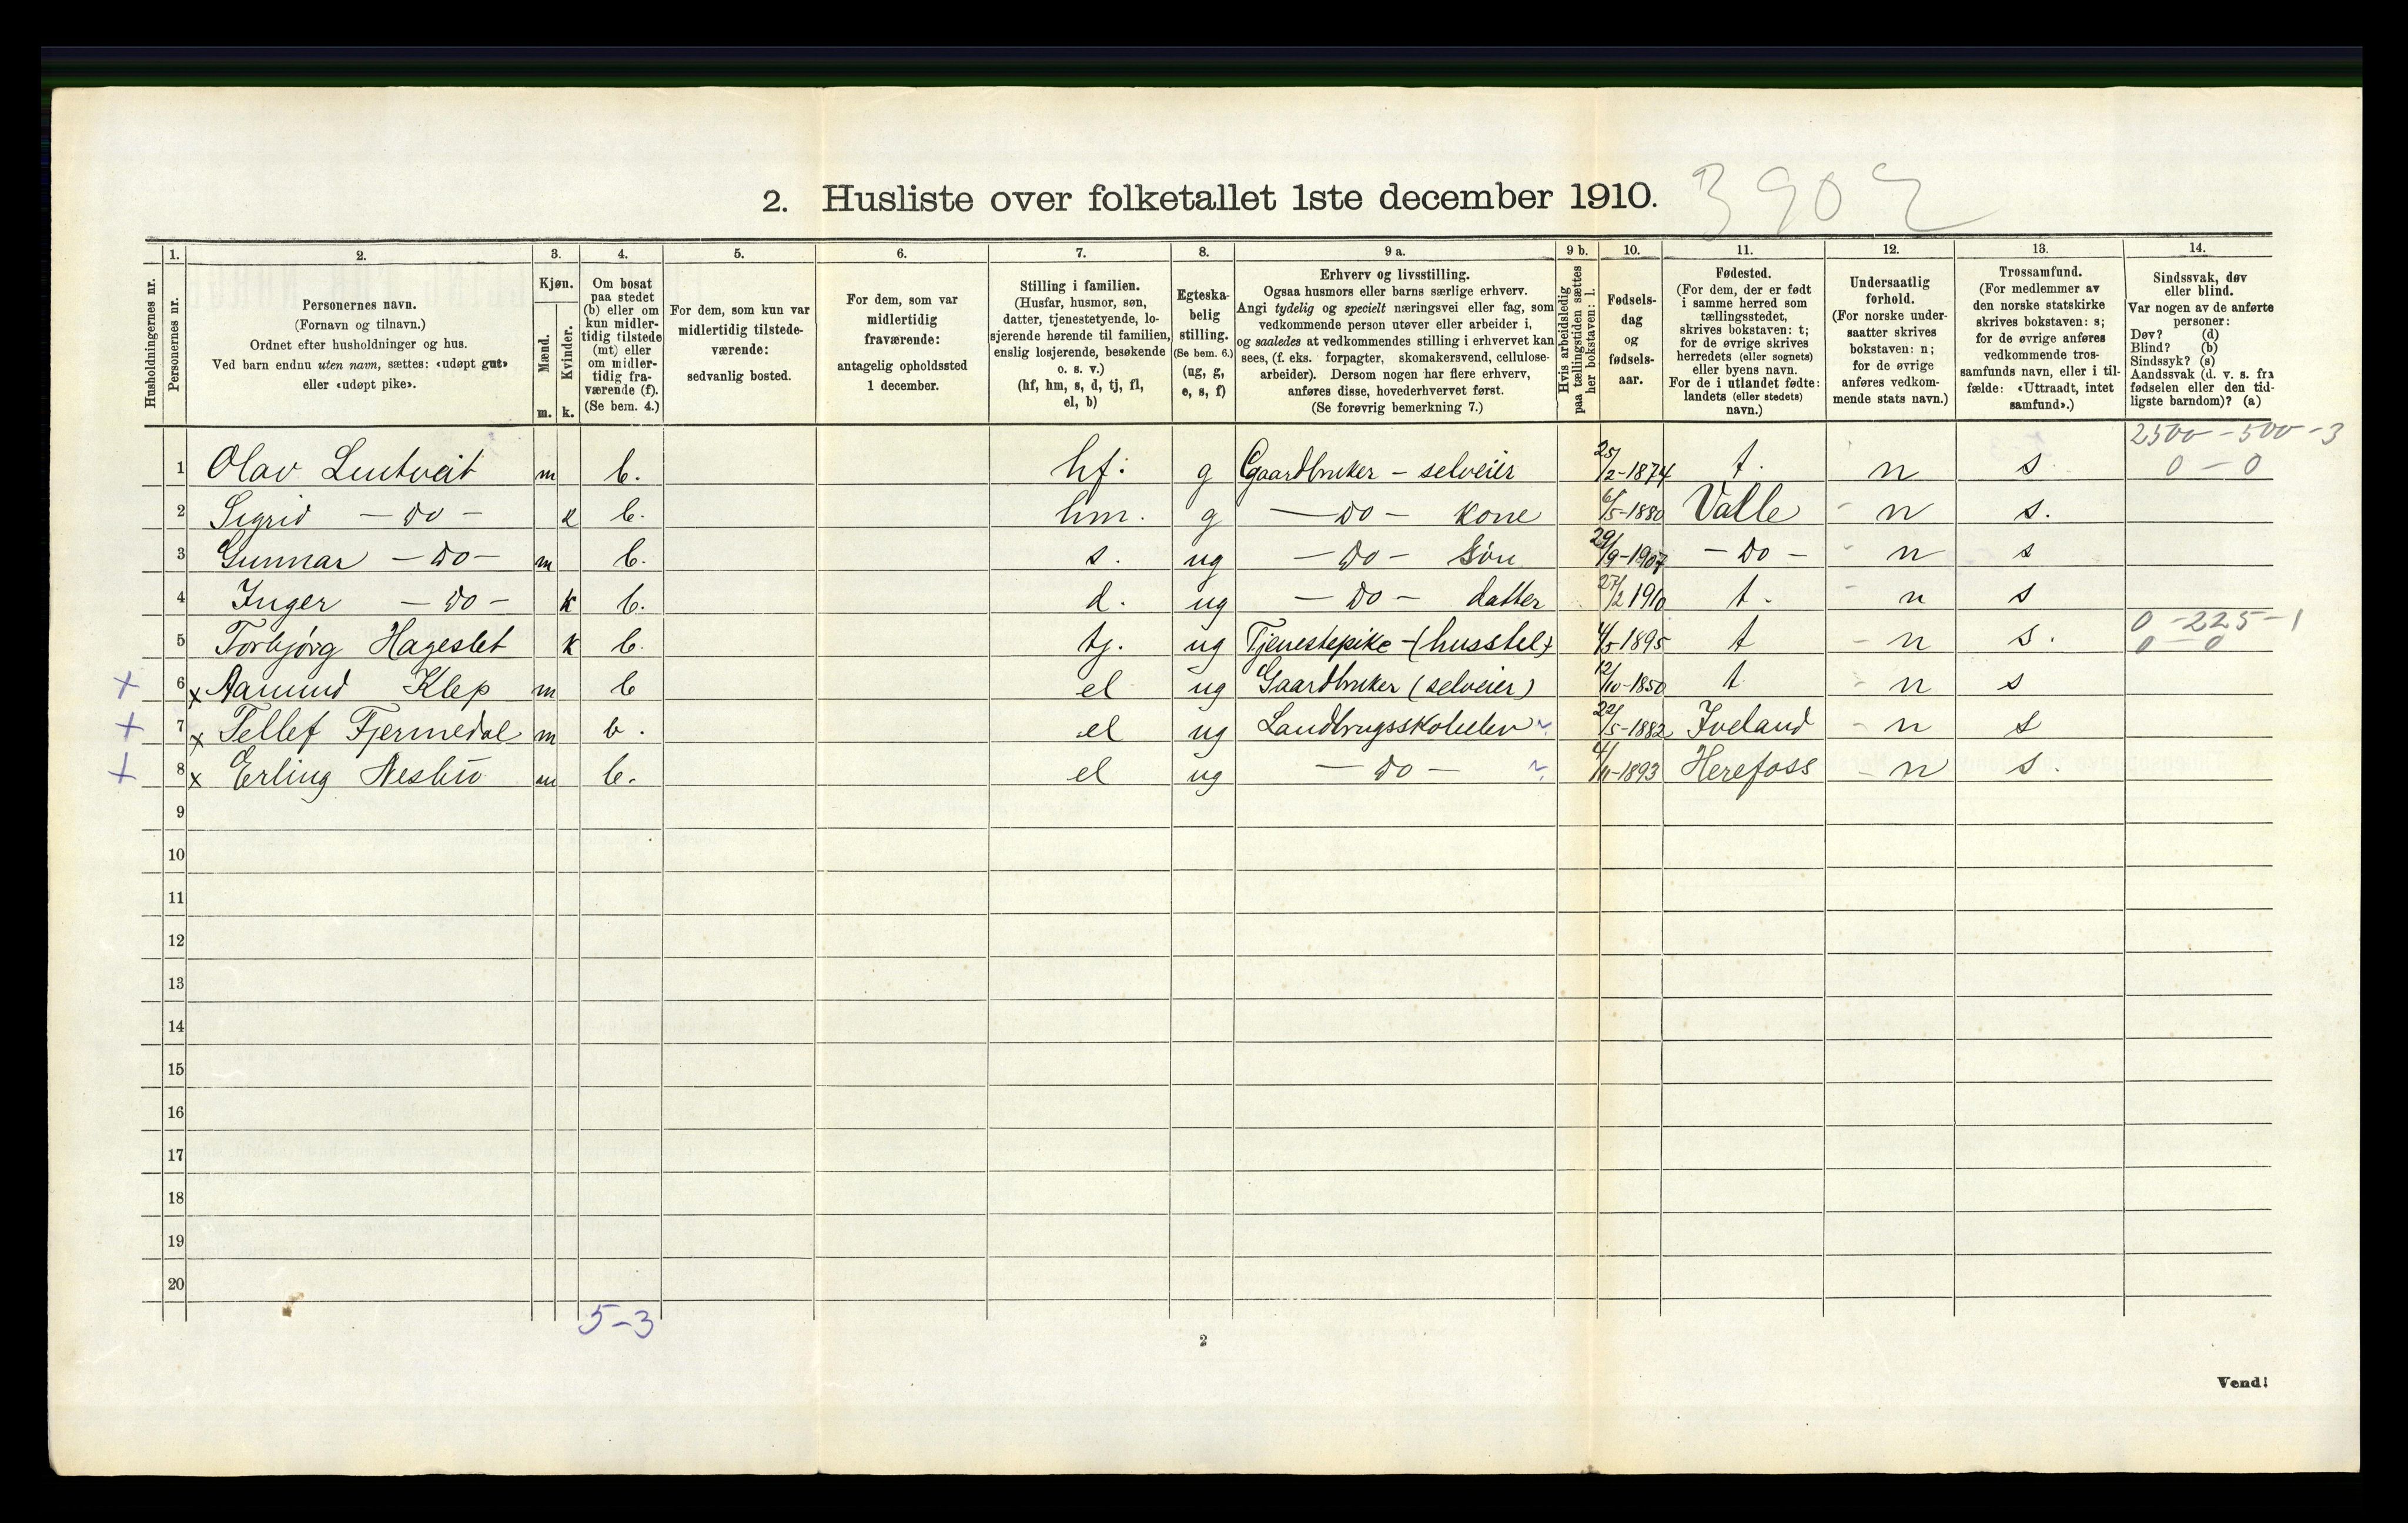 2. Husliste over folketallet 1ste december 1910.
3902
Husholdningernes nr.
1.
Personernes nr.
2.
Personernes navn.
(Fornavn og tilnavn.)
Ordnet efter husholdninger og hus.
Ved barn endnu uten navn, sættes: «udøpt gut»
eller «udøpt pike».
3.
Kjøn.
Mænd.
Kvinder.
m. k.
4.
Om bosat
paa stedet
(b) eller om
kun midler-
tidig tilstede
(mt) eller
om midler-
tidig fra-
værende (f).
(Se bem. 4.)
5.
For dem, som kun var
midlertidig tilstede-
værende:
sedvanlig bosted.
6.
For dem, som var
midlertidig
fraværende:
antagelig opholdssted
1 december.
7.
Stilling i familien.
(Husfar, husmor, søn,
datter, tjenestetyende, lo-
sjerende hørende til familien,
enslig losjerende, besøkende
o. s. v.)
(hf, hm, s, d, tj, fl,
el, b)
8.
Egteska-
belig
stilling.
(Se bem. 6.)
(ug, g,
e, s, f)
9 a.
Erhverv og livsstilling.
Ogsaa husmors eller barns særlige erhverv.
Angi tydelig og specielt næringsvei eller fag, som
vedkommende person utøver eller arbeider i,
og saaledes at vedkommendes stilling i erhvervet kan
sees, (f. eks. forpagter, skomakersvend, cellulose-
arbeider). Dersom nogen har flere erhverv,
anføres disse, hovederhvervet først.
(Se forøvrig bemerkning 7.)
9 b.
Hvis arbeidsledig
paa tællingstiden sættes
her bokstaven: l.
10.
Fødsels-
dag
og
fødsels-
aar.
11.
Fødested.
(For dem, der er født
i samme herred som
tællingsstedet,
skrives bokstaven: t;
for de øvrige skrives
herredets (eller sognets)
eller byens navn.
For de i utlandet fødte:
landets (eller stedets)
navn.)
12.
Undersaatlig
forhold.
(For norske under-
saatter skrives
bokstaven: n;
for de øvrige
anføres vedkom-
mende stats navn.)
13.
Trossamfund.
(For medlemmer av
den norske statskirke
skrives bokstaven: s;
for de øvrige anføres
vedkommende tros-
samfunds navn, eller i til-
fælde: «Uttraadt, intet
samfund».)
14.
Sindssvak, døv
eller blind.
Var nogen av de anførte
personer:
Døv? (d)
Blind? (b)
Sindssyk? (s)
Aandssvak (d. v. s. fra
fødselen eller den tid-
ligste barndom)? (a)
2500 - 500 - 3
1 Olav m b. hf: g Gaardbruker - selveier 25/2-1874 t. n s. 0 - 0
2 Sigrid - do - k b. hm. g - do - kone 6/5-1880 Valle - n s.
3 Gunnar - do - m b. s. ug - do - søn 29/9-1907 - do - - n s
4 Inger - do - k b. d. ug - do - datter 27/2 1910 t. - n s
0 - 225 - 1
5 Torbjørg Hageslet k b. tj. ug Tjenestepike - (husstel) 4/5-1895 t - n s. 0 - 0
+ 6 x Aamund Klep m b el ug Gaardbruker (selveier) 12/10-1850 t - n s
+ 7 x Tellef Fjermedal m b. el ug Landbrugsskoleelev ~ 22/5-1882 Iveland - n s
+ 8 x Erling Nesbø m b. el ug - do - ~ 4/11-1893 Herefoss - n s.
9
10
11
12
13
14
15
16
17
18
19
20
5-3
2
Vend!